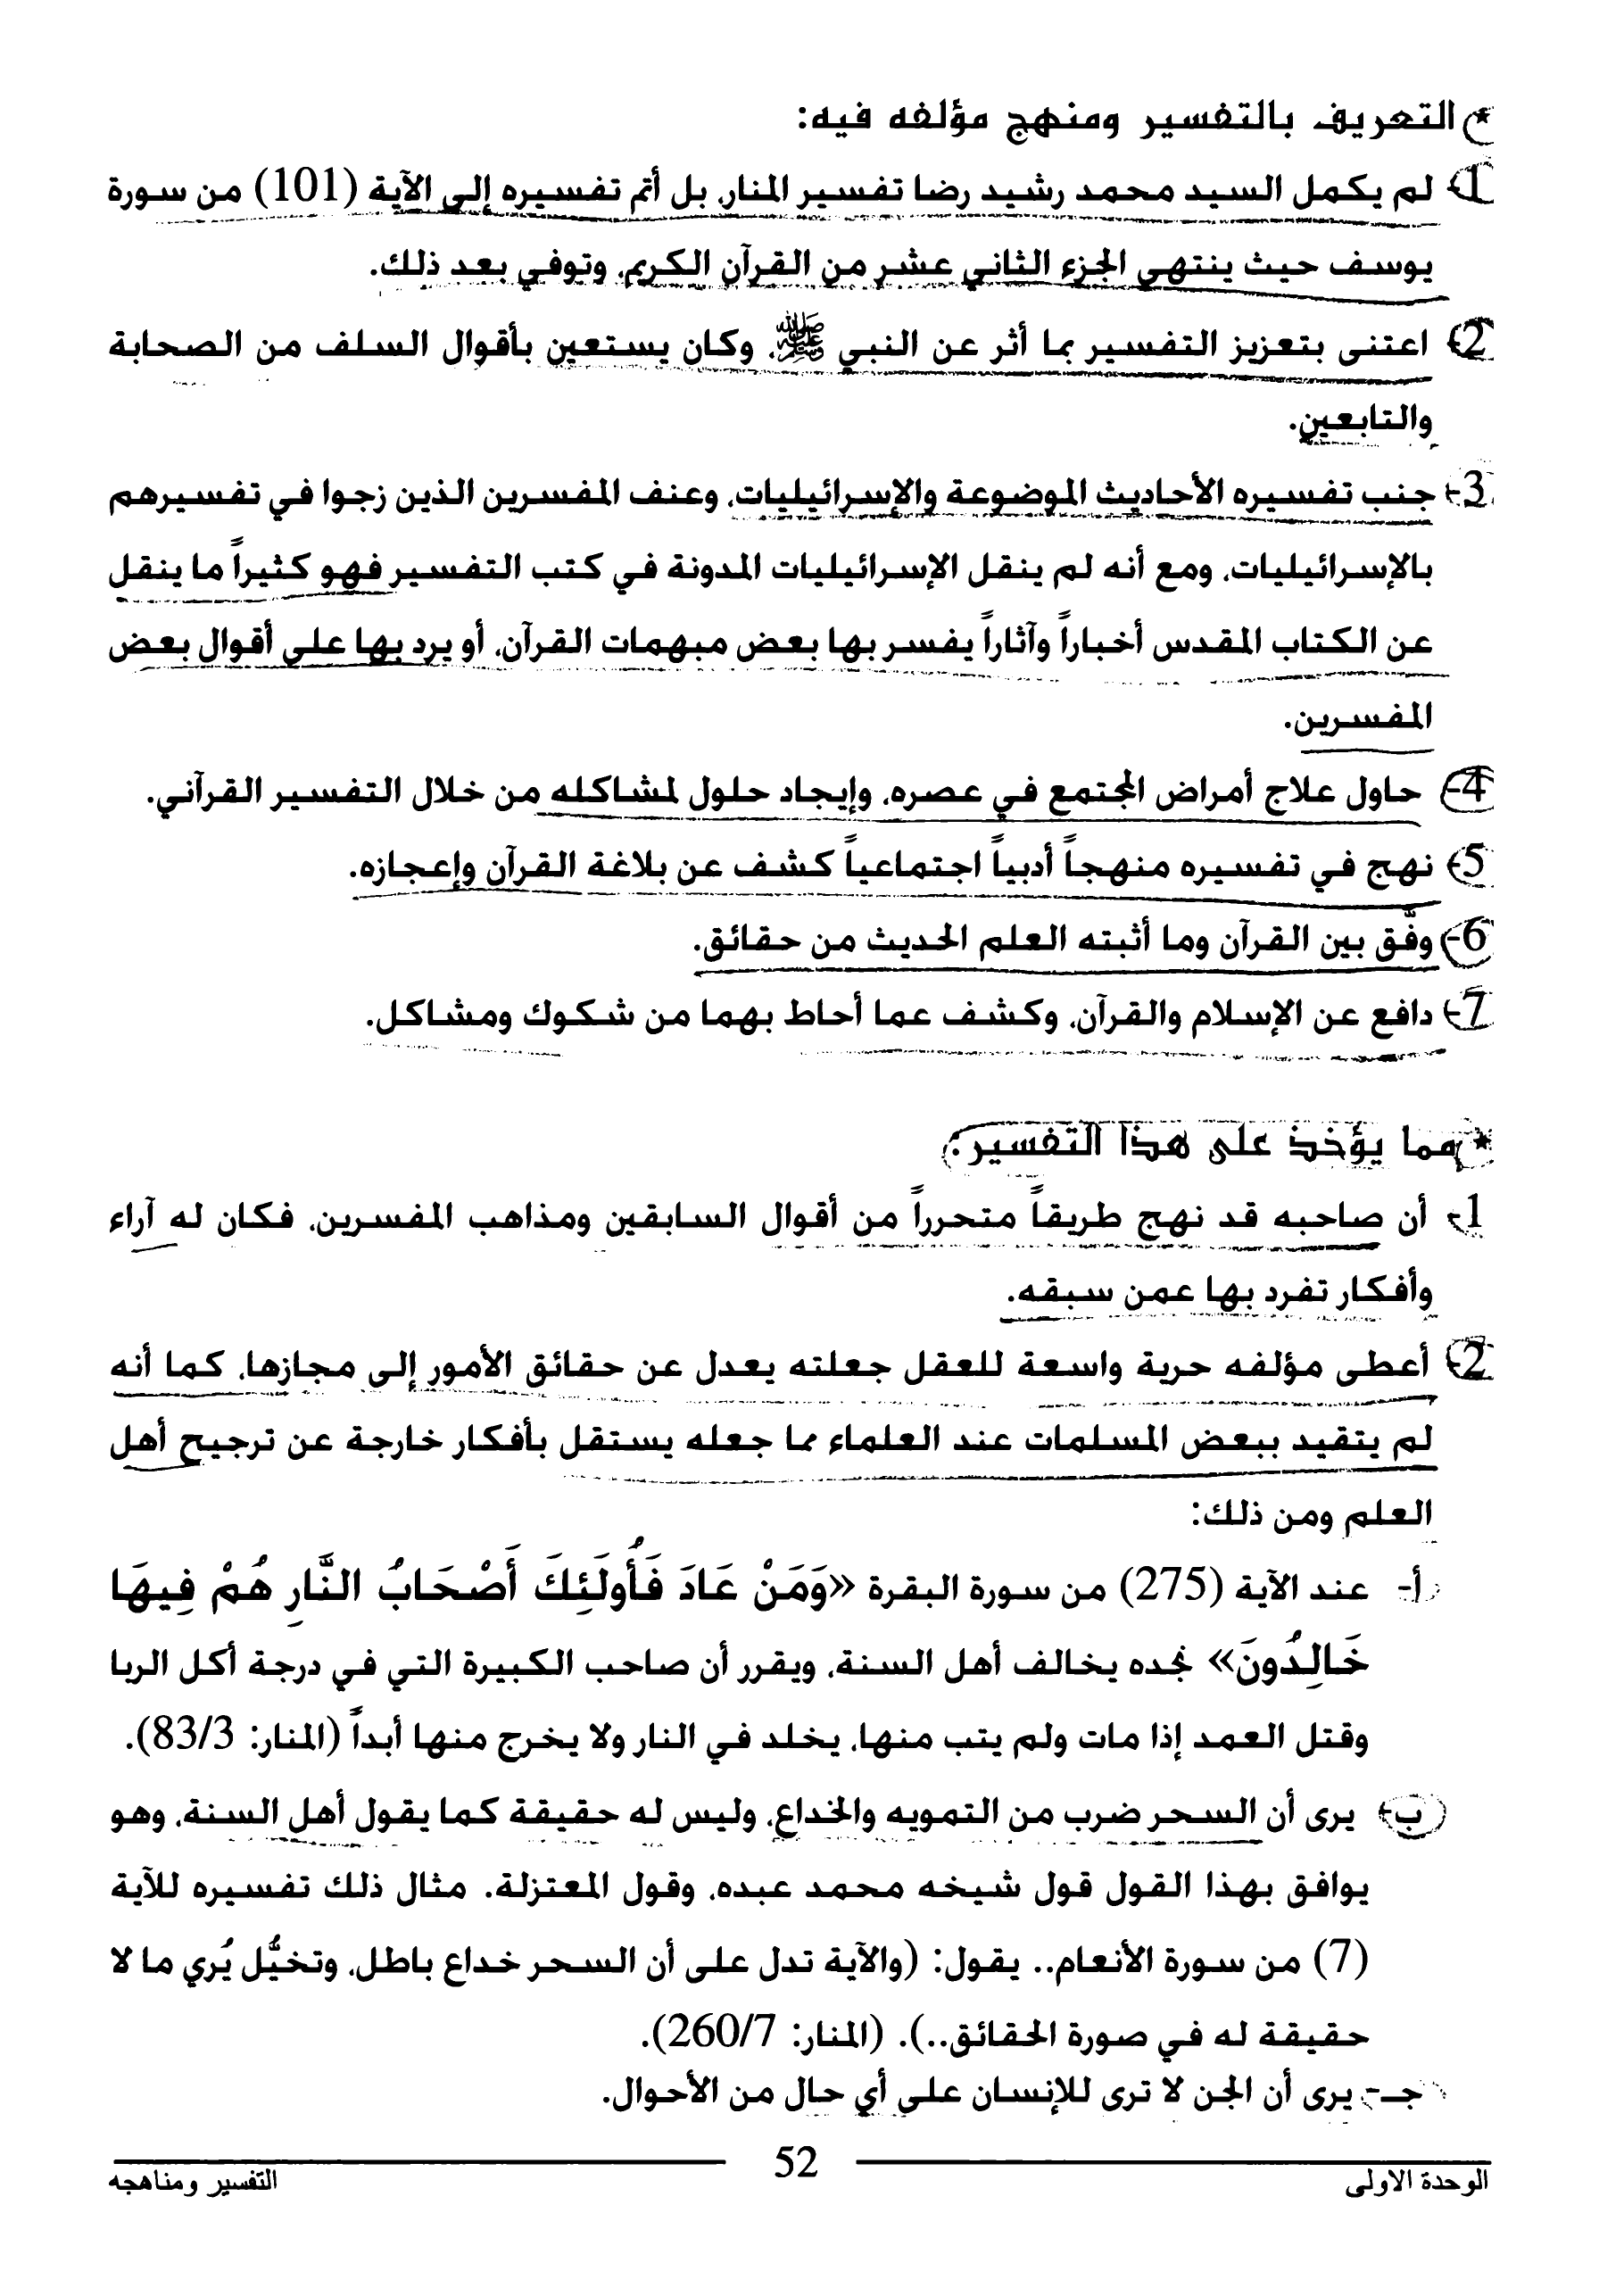 * التعريف بالتفسير ومنهج مؤلفه فيه:
1- لم يكمل السيد محمد رشيد رضا تفسير المنار، بل أتم تفسيره إلى الآية (101) من سورة
يوسف حيث ينتهي الجزء الثاني عشر من القرآن الكريم، وتوفي بعد ذلك.
2- اعتنى بتعزيز التفسير بما أثر عن النبي ﷺ، وكان يستعين بأقوال السلف من الصحابة
والتابعين.
3- جنب تفسيره الأحاديث الموضوعة والإسرائيليات، وعنف المفسرين الذين زجوا في تفسيرهم
بالإسرائيليات، ومع أنه لم ينقل الإسرائيليات المدونة في كتب التفسير فهو كثيراً ما ينقل
عن الكتاب المقدس أخباراً وآثاراً يفسر بها بعض مبهمات القرآن، أو يرد بها على أقوال بعض
المفسرين.
4- حاول علاج أمراض المجتمع في عصره، وإيجاد حلول لمشاكله من خلال التفسير القرآني.
5- نهج في تفسيره منهجاً أدبياً اجتماعياً كشف عن بلاغة القرآن وإعجازه.
6- وفَّق بين القرآن وما أثبته العلم الحديث من حقائق.
7- دافع عن الإسلام والقرآن، وكشف عما أحاط بهما من شكوك ومشاكل.
* مما يؤخذ على هذا التفسير:
1- أن صاحبه قد نهج طريقاً متحرراً من أقوال السابقين ومذاهب المفسرين، فكان له آراء
وأفكار تفرد بها عمن سبقه.
2- أعطى مؤلفه حرية واسعة للعقل جعلته يعدل عن حقائق الأمور إلى مجازها، كما أنه
لم يتقيد ببعض المسلمات عند العلماء مما جعله يستقل بأفكار خارجة عن ترجيح أهل
العلم ومن ذلك:
أ- عند الآية (275) من سورة البقرة «وَمَنْ عَادَ فَأُولَئِكَ أَصْحَابُ النَّارِ هُمْ فِيهَا
خَالِدُونَ» نجده يخالف أهل السنة، ويقرر أن صاحب الكبيرة التي في درجة أكل الربا
وقتل العمد إذا مات ولم يتب منها، يخلد في النار ولا يخرج منها أبداً (المنار: 83/3).
ب- يرى أن السحر ضرب من التمويه والخداع، وليس له حقيقة كما يقول أهل السنة، وهو
يوافق بهذا القول قول شيخه محمد عبده، وقول المعتزلة. مثال ذلك تفسيره للآية
(7) من سورة الأنعام.. يقول: (والآية تدل على أن السحر خداع باطل، وتخيُّل يُري ما لا
حقيقة له في صورة الحقائق..). (المنار: 260/7).
جـ- يرى أن الجن لا ترى للإنسان على أي حال من الأحوال.
الوحدة الاولى 52 التفسير ومناهجه